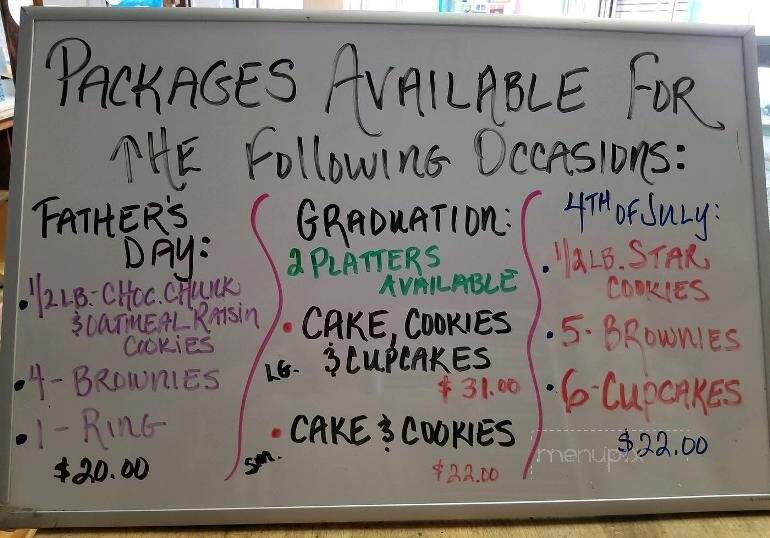 PACKAGES AVAILABLE FOR
THE FOllOWING OCCASIONS:
FATHER'S
DAY:
• 1/2 LB.- CHOC. CHUNK
& OATMEAL RAISIN
COOKIES
• 4 - BROWNIES
• 1 - RING
$20.00
GRADUATION:
2 PLATTERS
AVAILABLE
• CAKE, COOKIES
LG- & CUPCAKES
$31.00
• CAKE & COOKIES
Sm.
$22.00
4TH OF JULY:
• 1/2 LB. STAR
COOKIES
• 5- BROWNIES
• 6- CUPCAKES
$22.00
menupix